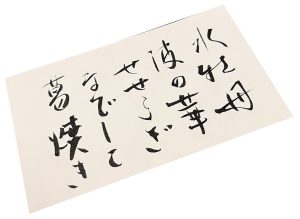 水牡丹
波の華
せせらぎ
なでしこ
葛焼き